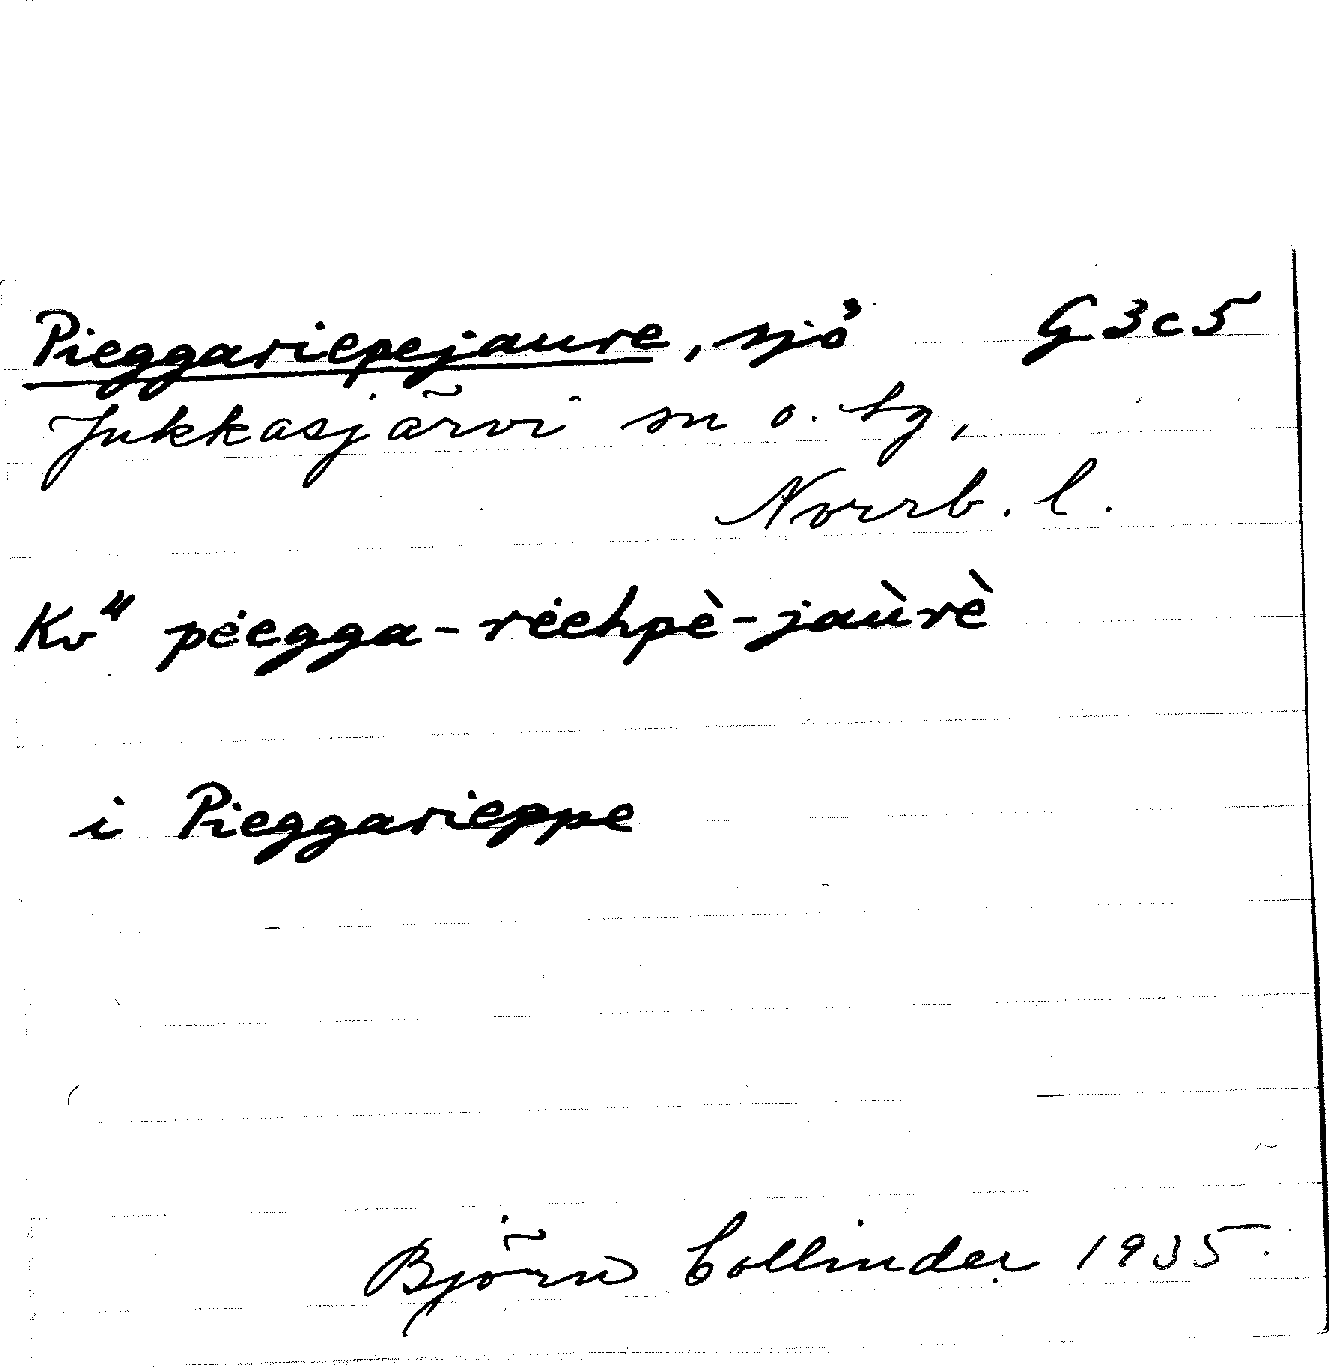 Pieggariepejaure, sjö G3c5
Jukkasjärvi sn o. tg,
Norrb. l.
Kv" pėegga-rėehpè-jaùrè
i Pieggarieppe
Björn Collinder 1935.